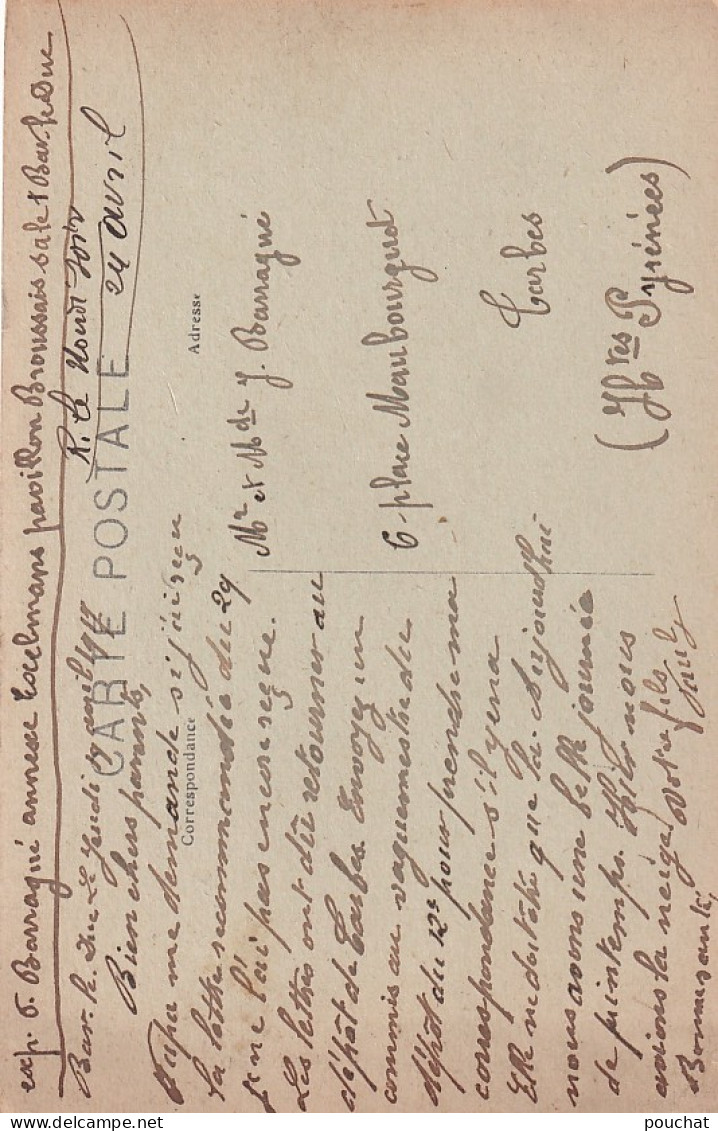 exp. G. Barragué annexe Excelmans pavillon Broussais salle 1 Bar-le-Duc
R. le lundi soir
24 avril
CARTE POSTALE
Correspondance
Adresse
Bar-le-Duc Le Jeudi avril
Bien chers parents,
Papa me demande si j'ai reçu
la lettre recommandée du 29
je ne l'ai pas encore reçue.
Les lettres ont dû retourner au
dépôt de Tarbes. Envoyez un
commis au vaguemestre du
dépôt du 12e pour prendre ma
correspondance s'il y en a
Elle ne doit être que là. Aujourd'hui
nous avons une belle journée
de printemps. Hier nous
avions la neige. Votre fils
Bonne santé,
Mr et Mde J. Barragué
6 - place Maubourguet
Tarbes
(Htes Pyrénées)
pouchat